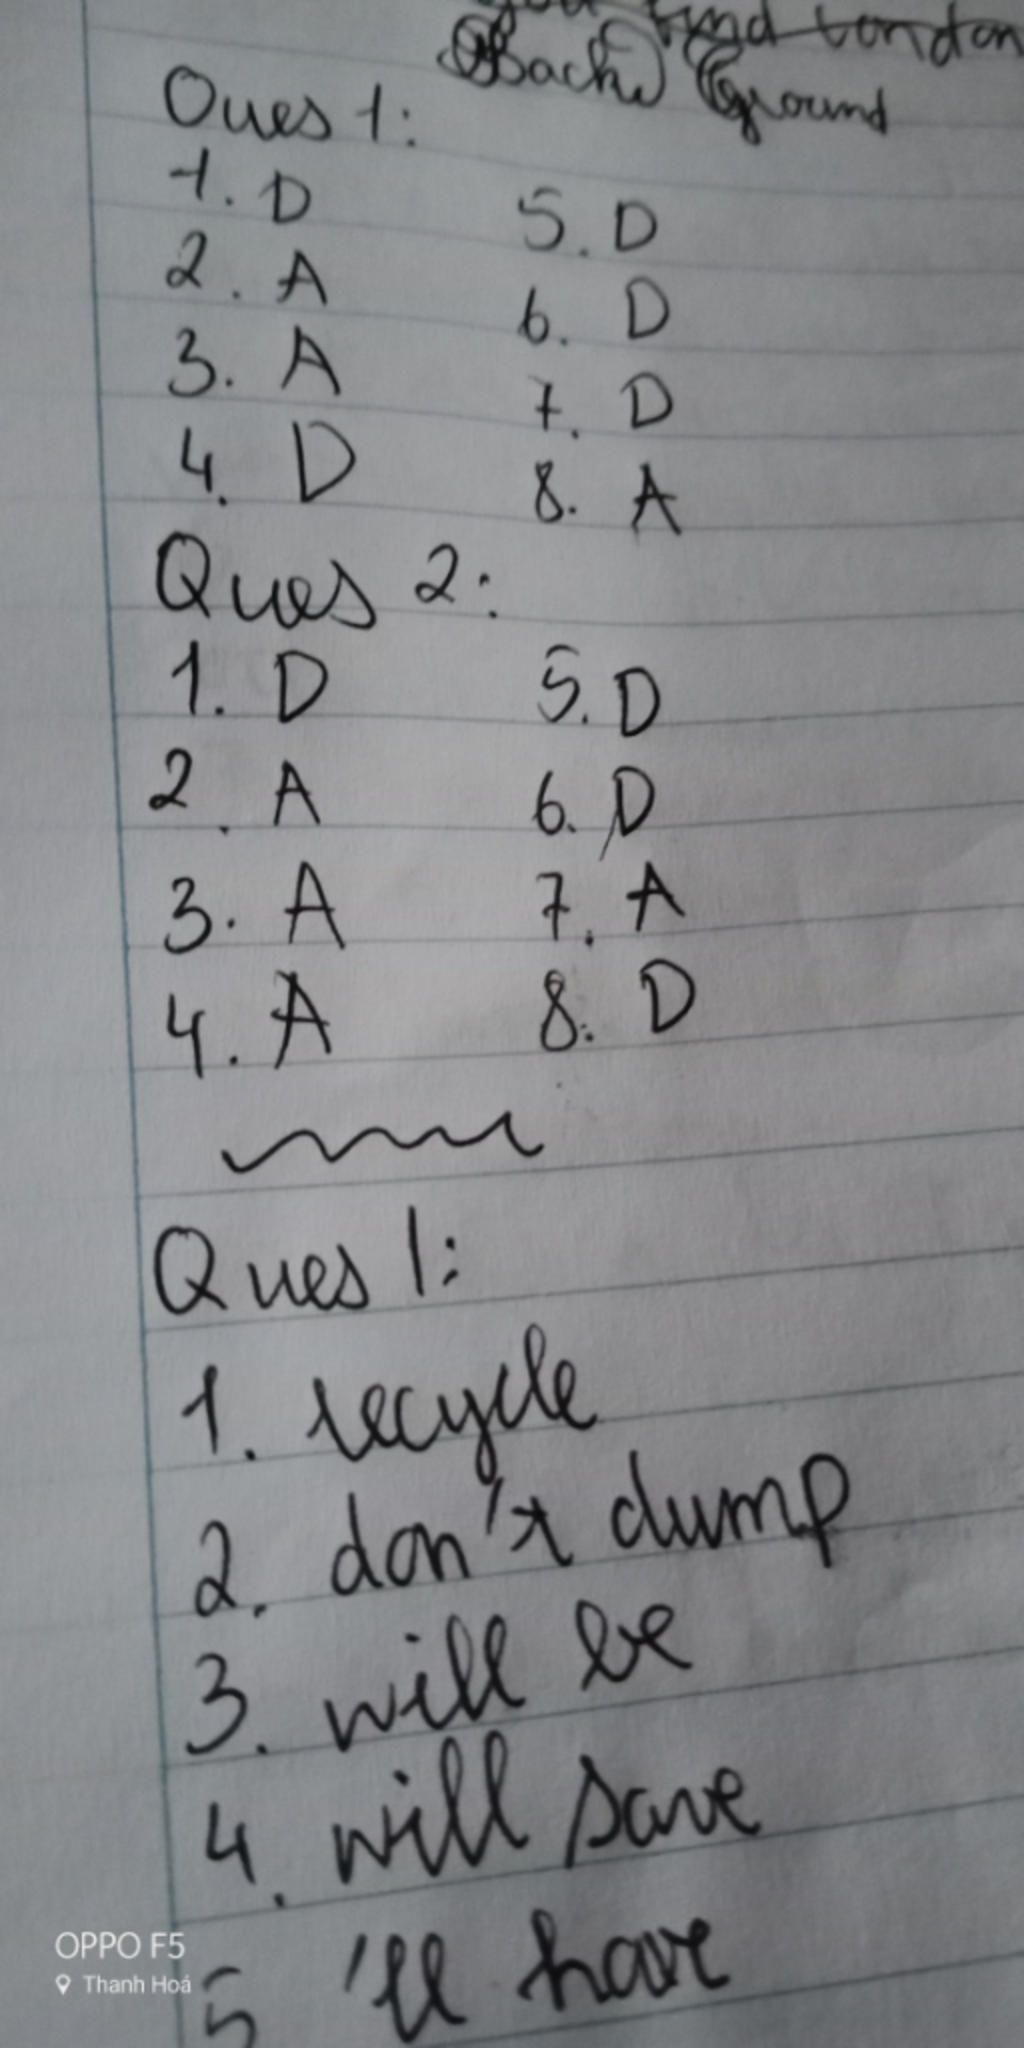 you find London
Back Ground
Ques 1:
1. D 5. D
2. A 6. D
3. A 7. D
4. D 8. A
Ques 2:
1. D 5. D
2. A 6. D
3. A 7. A
4. A 8. D
Ques 1:
1. recycle
2. don't dump
3. will be
4. will save
5 'll have
OPPO F5
Thanh Hoá